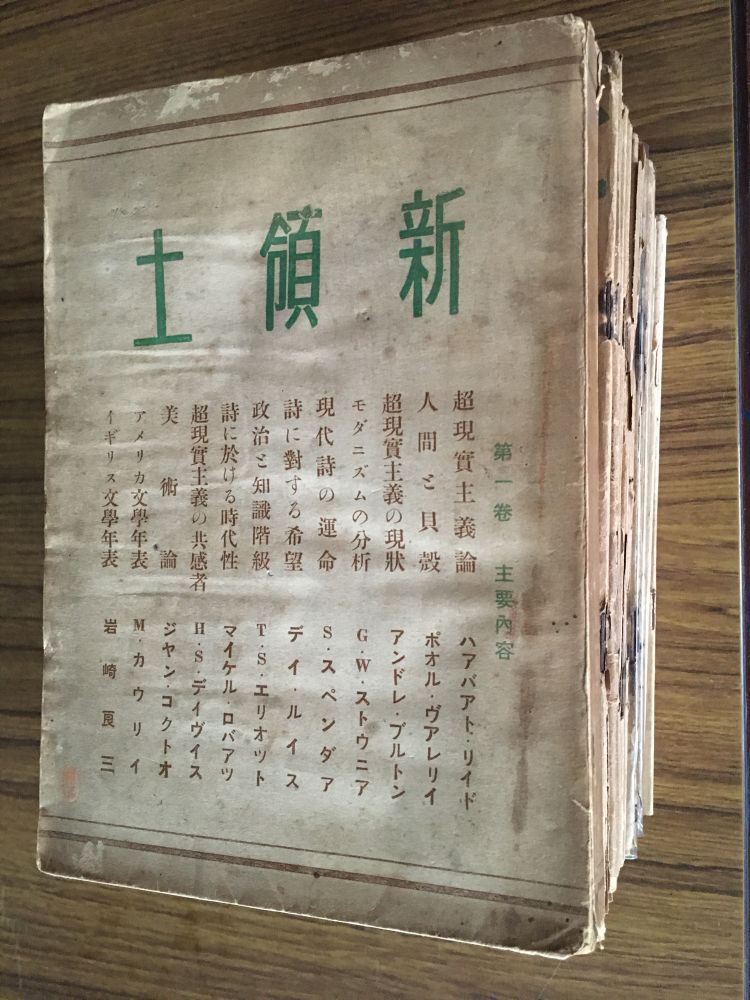 新領土
第一卷 主要內容
超現實主義論 ハアバアト・リイド
人間と貝殼 ポオル・ヴアレリイ
超現實主義の現狀 アンドレ・ブルトン
モダニズムの分析 G・W・ストウニア
現代詩の運命 S・スペンダア
詩に對する希望 デイ・ルイス
政治と知識階級 T・S・エリオツト
詩に於ける時代性 マイケル・ロバアツ
超現實主義の共感者 H・S・デイヴイス
美術論 ジヤン・コクトオ
アメリカ文學年表 M・カウリイ
イギリス文學年表 岩崎良三